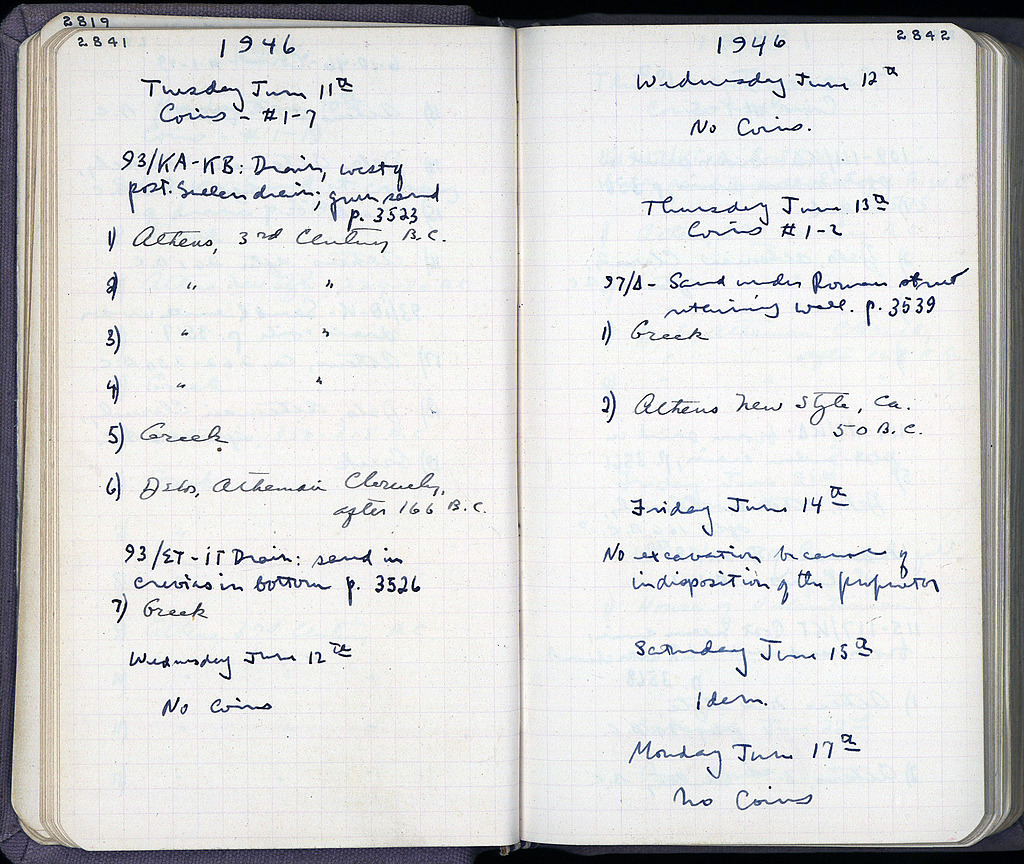 2819
2841
1946
Tuesday June 11th
Coins - #1-7
93/KA-KB: Drain, west of
post-Sullan drain; green sand
p. 3523
1) Athens, 3rd Century B.C.
2) " "
3) " "
4) " "
5) Greek
6) Delos, Athenian Cleruchy,
after 166 B.C.
93/ET-IT Drain: sand in
crevices in bottom p. 3526
7) Greek
Wednesday June 12th
No Coins
2842
1946
Wednesday June 12th
No Coins.
Thursday June 13th
Coins #1-2
97/Δ- Sand under Roman street
retaining wall. p. 3539
1) Greek
2) Athens New Style, ca.
50 B.C.
Friday June 14th
No excavation because of
indisposition of the proprietor
Saturday June 15th
Idem.
Monday June 17th
No Coins